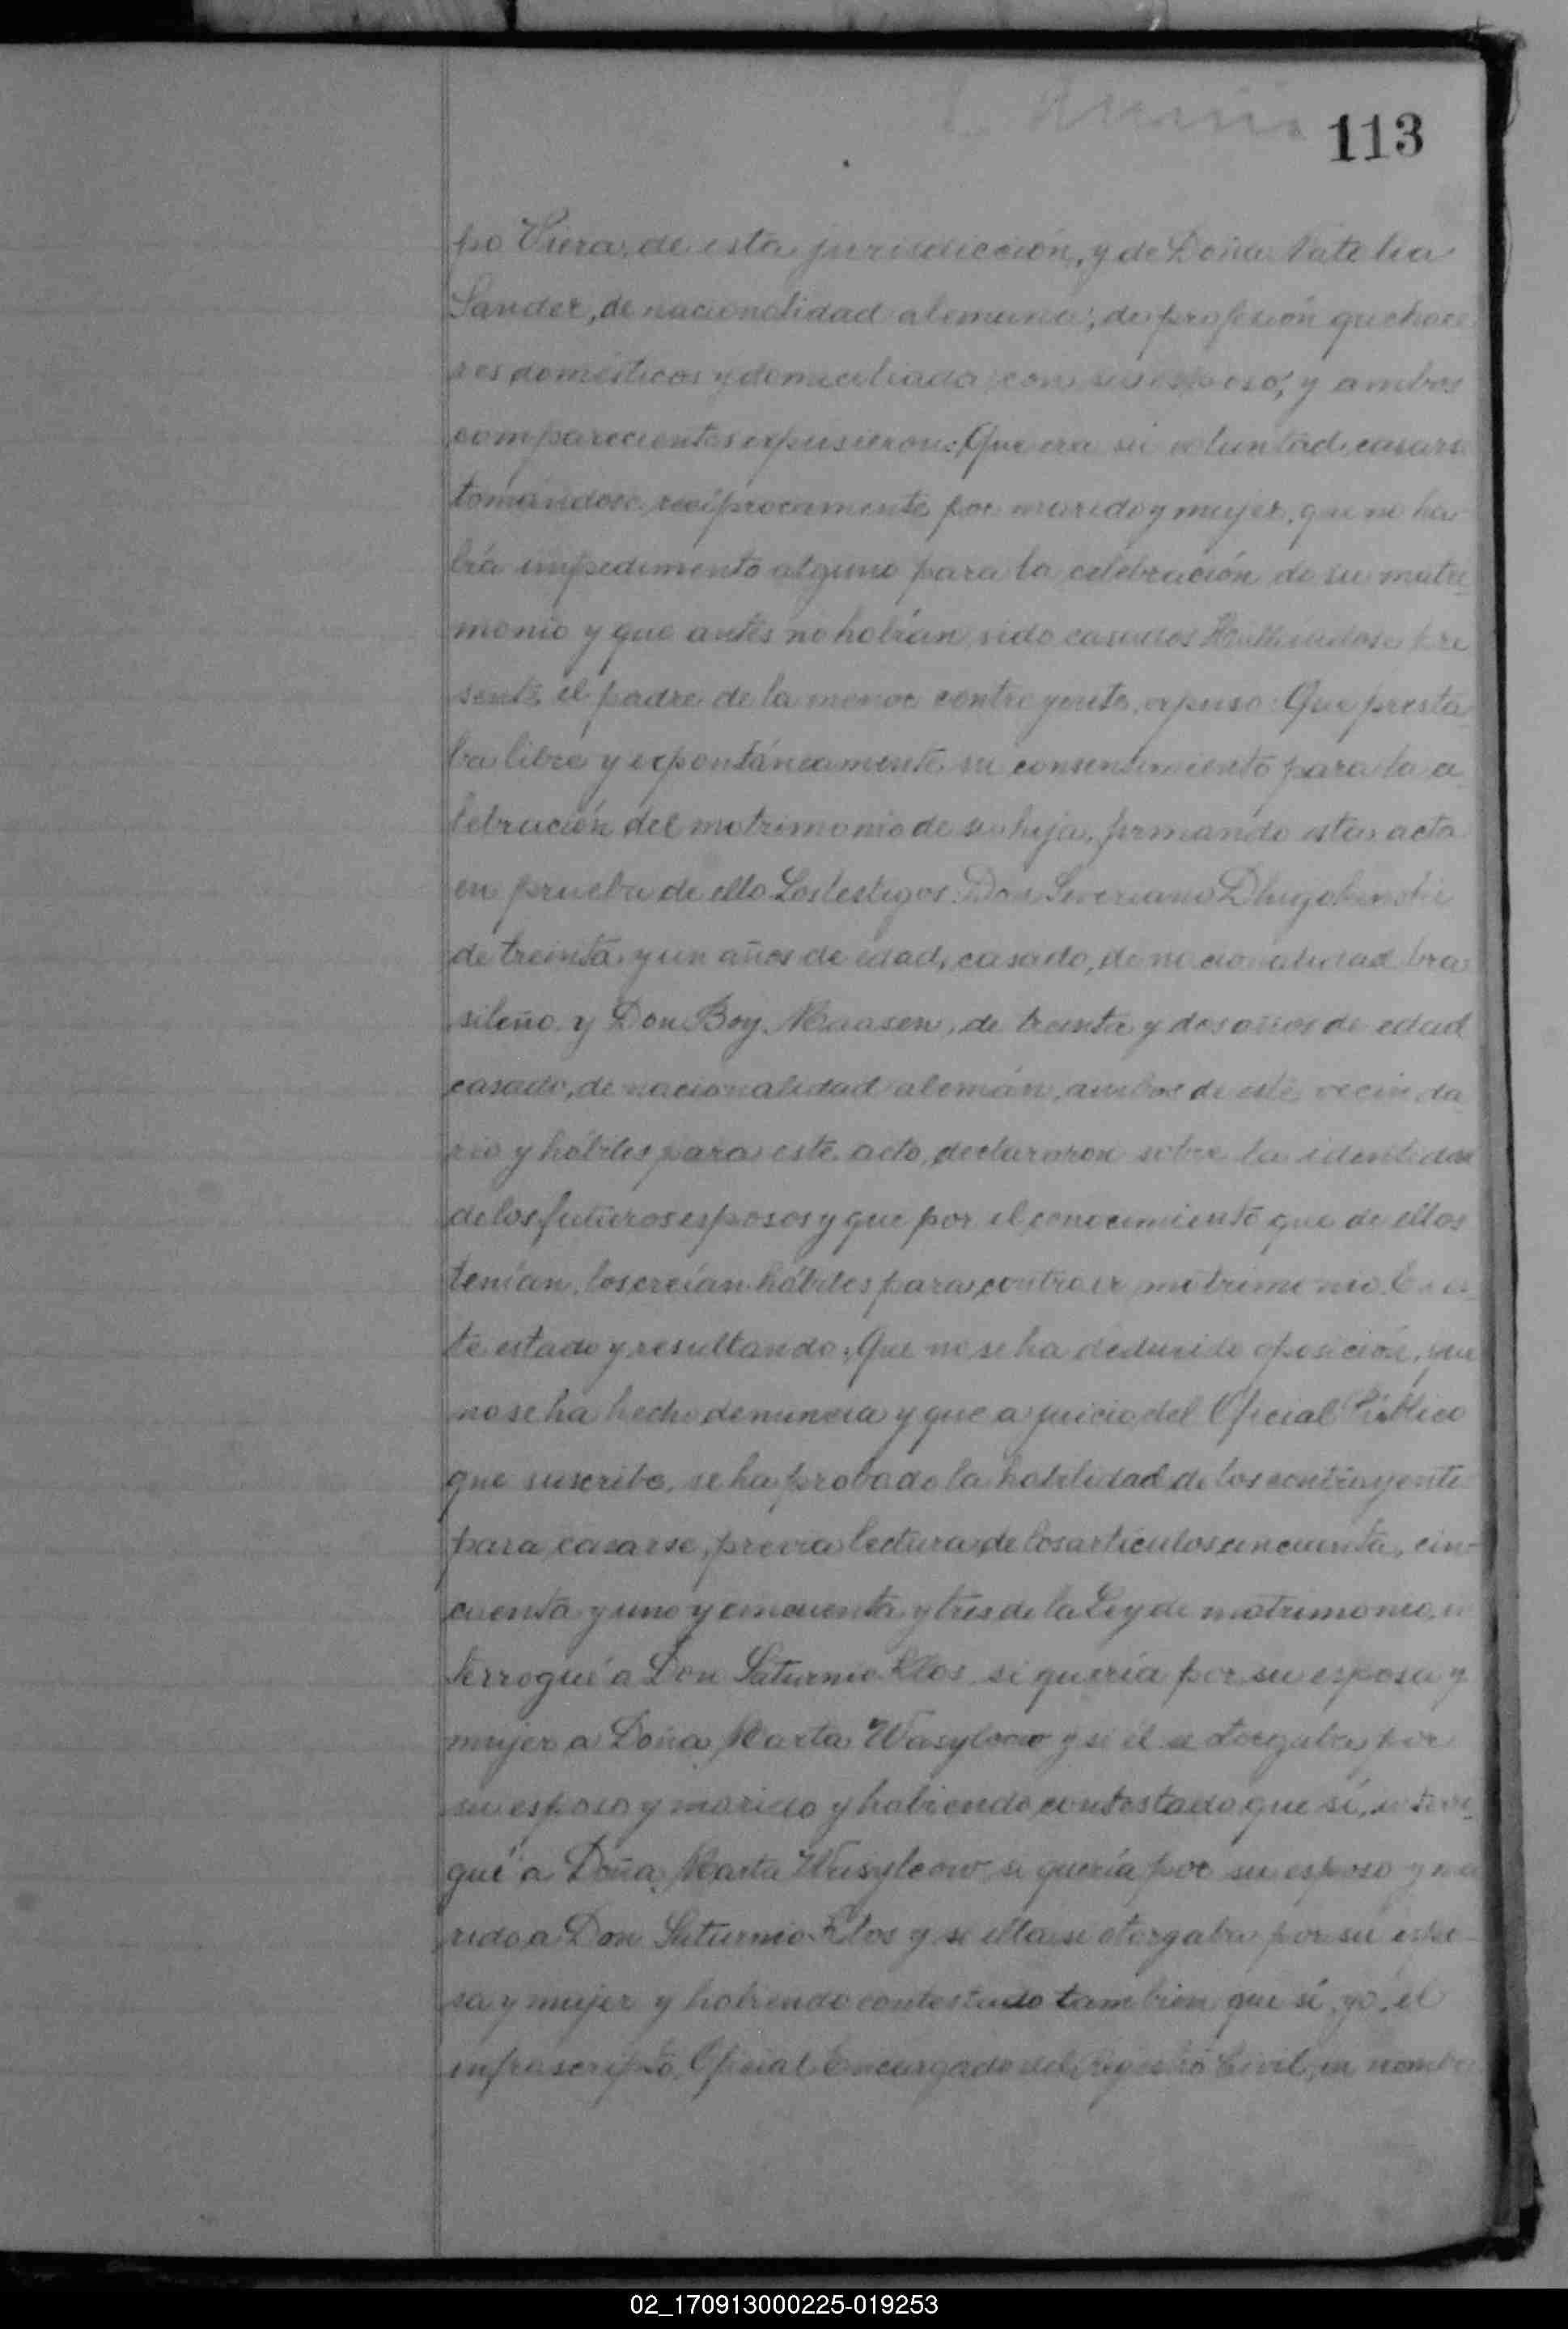 113
po Viera, de esta jurisdicción, y de Doña Natalia
Sander, de nacionalidad alemana, de profesión quehace
res domésticos y domiciliada con su esposo, y ambos
comparecientes expusieron: Que era su voluntad casarse
tomándose recíprocamente por marido y mujer, que no ha-
bía impedimento alguno para la celebración de su matri
monio y que antes no habían sido casados Hallándose pre
sente el padre de la menor contrayente, expuso: Que presta
ba libre y expontáneamente su consentimiento para la ce
lebración del matrimonio de su hija, firmando esta acta
en prueba de ello Los testigos Don Severiano
de treinta y un años de edad, casado, de nacionalidad bra
sileño y Don Boy Maasen, de treinta y dos años de edad
casado, de nacionalidad alemán, ambos de este vecinda
rio y hábiles para este acto, declararon sobre la identidad
de los futuros esposos y que por el conocimiento que de ellos
tenían, los creían hábiles para contraer matrimonio. En es
te estado y resultando: Que no se ha deducido oposición, que
no se ha hecho denuncia y que a juicio del Oficial Público
que suscribe, se ha probado la habilidad de los contrayente
para casarse, previa lectura de los artículos cincuenta, cin-
cuenta y uno y cincuenta y tres de la Ley de matrimonio, in
terrogué a Don Saturnio Klos si quería por su esposa y
mujer a Doña Marta Wasylcow y si él se otorgaba por
su esposo y marido y habiendo contestado que sí, interro
gué a Doña Marta Wasylcow si quería por su esposo y ma
rido a Don Saturnio Klos y si ella se otorgaba por su espo-
sa y mujer y habiendo contestado tambien que sí, yo, el
infrascripto, Oficial Encargado del Registro Civil, en nombre
02_170913000225-019253